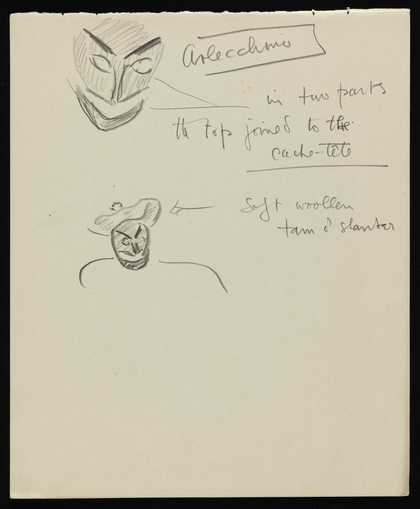 Arlecchino
in two parts
the top joined to the
cache-tête
soft woollen
tam o' shanter